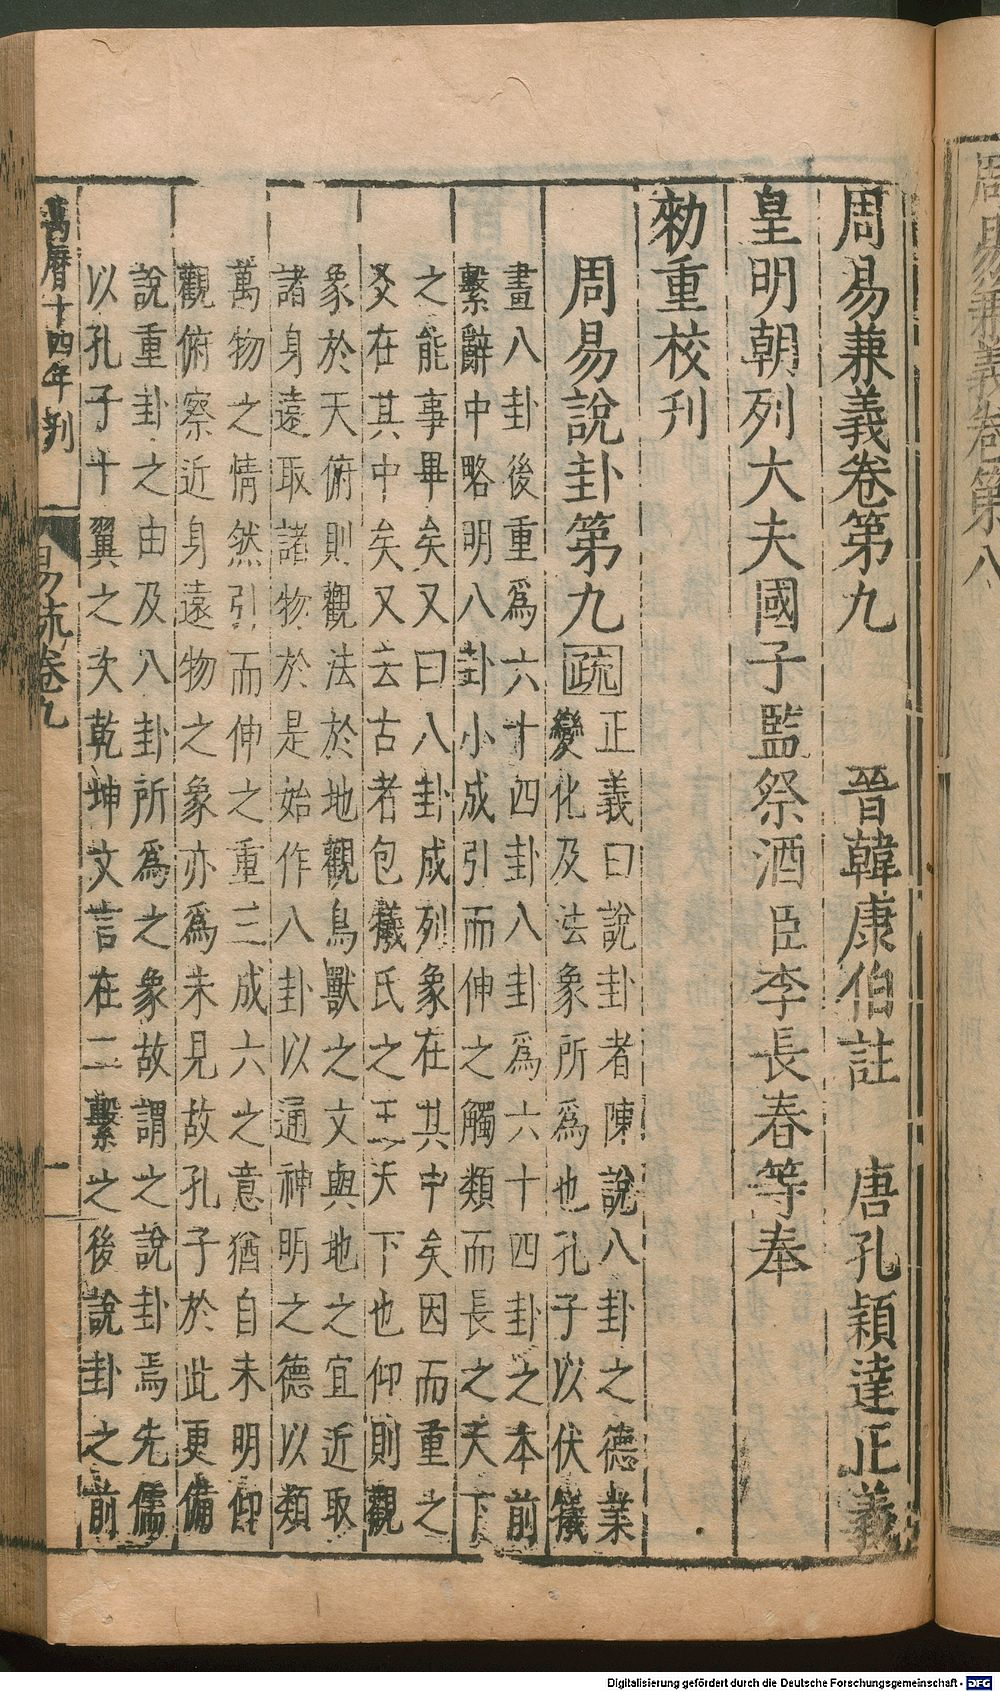 周易兼義卷第八
周易兼義卷第九　晉韓康伯註　唐孔穎達正義
皇明朝列大夫國子監祭酒臣李長春等奉
勑重校刋
周易說卦第九　疏　正義曰說卦者陳說八卦之德業
變化及法象所爲也孔子以伏犧
畫八卦後重爲六十四卦八卦爲六十四卦之本前
繫辭中略明八卦小成引而伸之觸類而長之天下
之能事畢矣又曰八卦成列象在其中矣因而重之
爻在其中矣又去古者包犧氏之王天下也仰則觀
象於天俯則觀法於地觀鳥獸之文與地之宜近取
諸身遠取諸物於是始作八卦以通神明之德以類
萬物之情然引而伸之重三成六之意猶自未明仰
觀俯察近身遠物之象亦爲未見故孔子於此更備
說重卦之由及八卦所爲之象故謂之說卦焉先儒
以孔子十翼之次乾坤文言在二繫之後說卦之前
萬曆十四年刋　易疏卷九　一
Digitalisierung gefördert durch die Deutsche Forschungsgemeinschaft - DFG